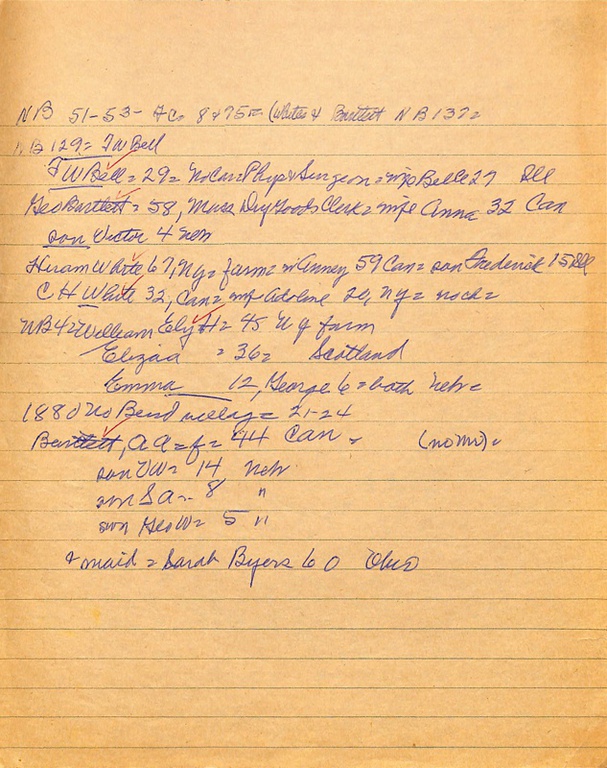 NB 51-53- Ac= 8475= (Whites & Bartlett NB 137=
NB 129= FW Bell
FW Bell= 29= NoCar= Phys & Surgeon= wife Belle 27 Ill
Geo Bartlett= 58, Mass Dry Goods Clerk= wife Anna 32 Can
son Victor 4 neb
Hiram White 67, Ny= farm= w Anney 59 Can= son Frederick 15 Ill
C H White 32, Can= wife Adoline 20, Ny= noch=
NB 4= William Ely H= 45 Ny farm
Elizaa = 36= Scotland
Emma 12, George 6= both neb=
1880 No Bend village= 21-24
Bartlett, AA= f= 44 Can - (no Mr)=
son VW= 14 Neb
son Sa-- 8 "
son Geo W= 5 "
& maid= Sarah Byers 60 Ohio